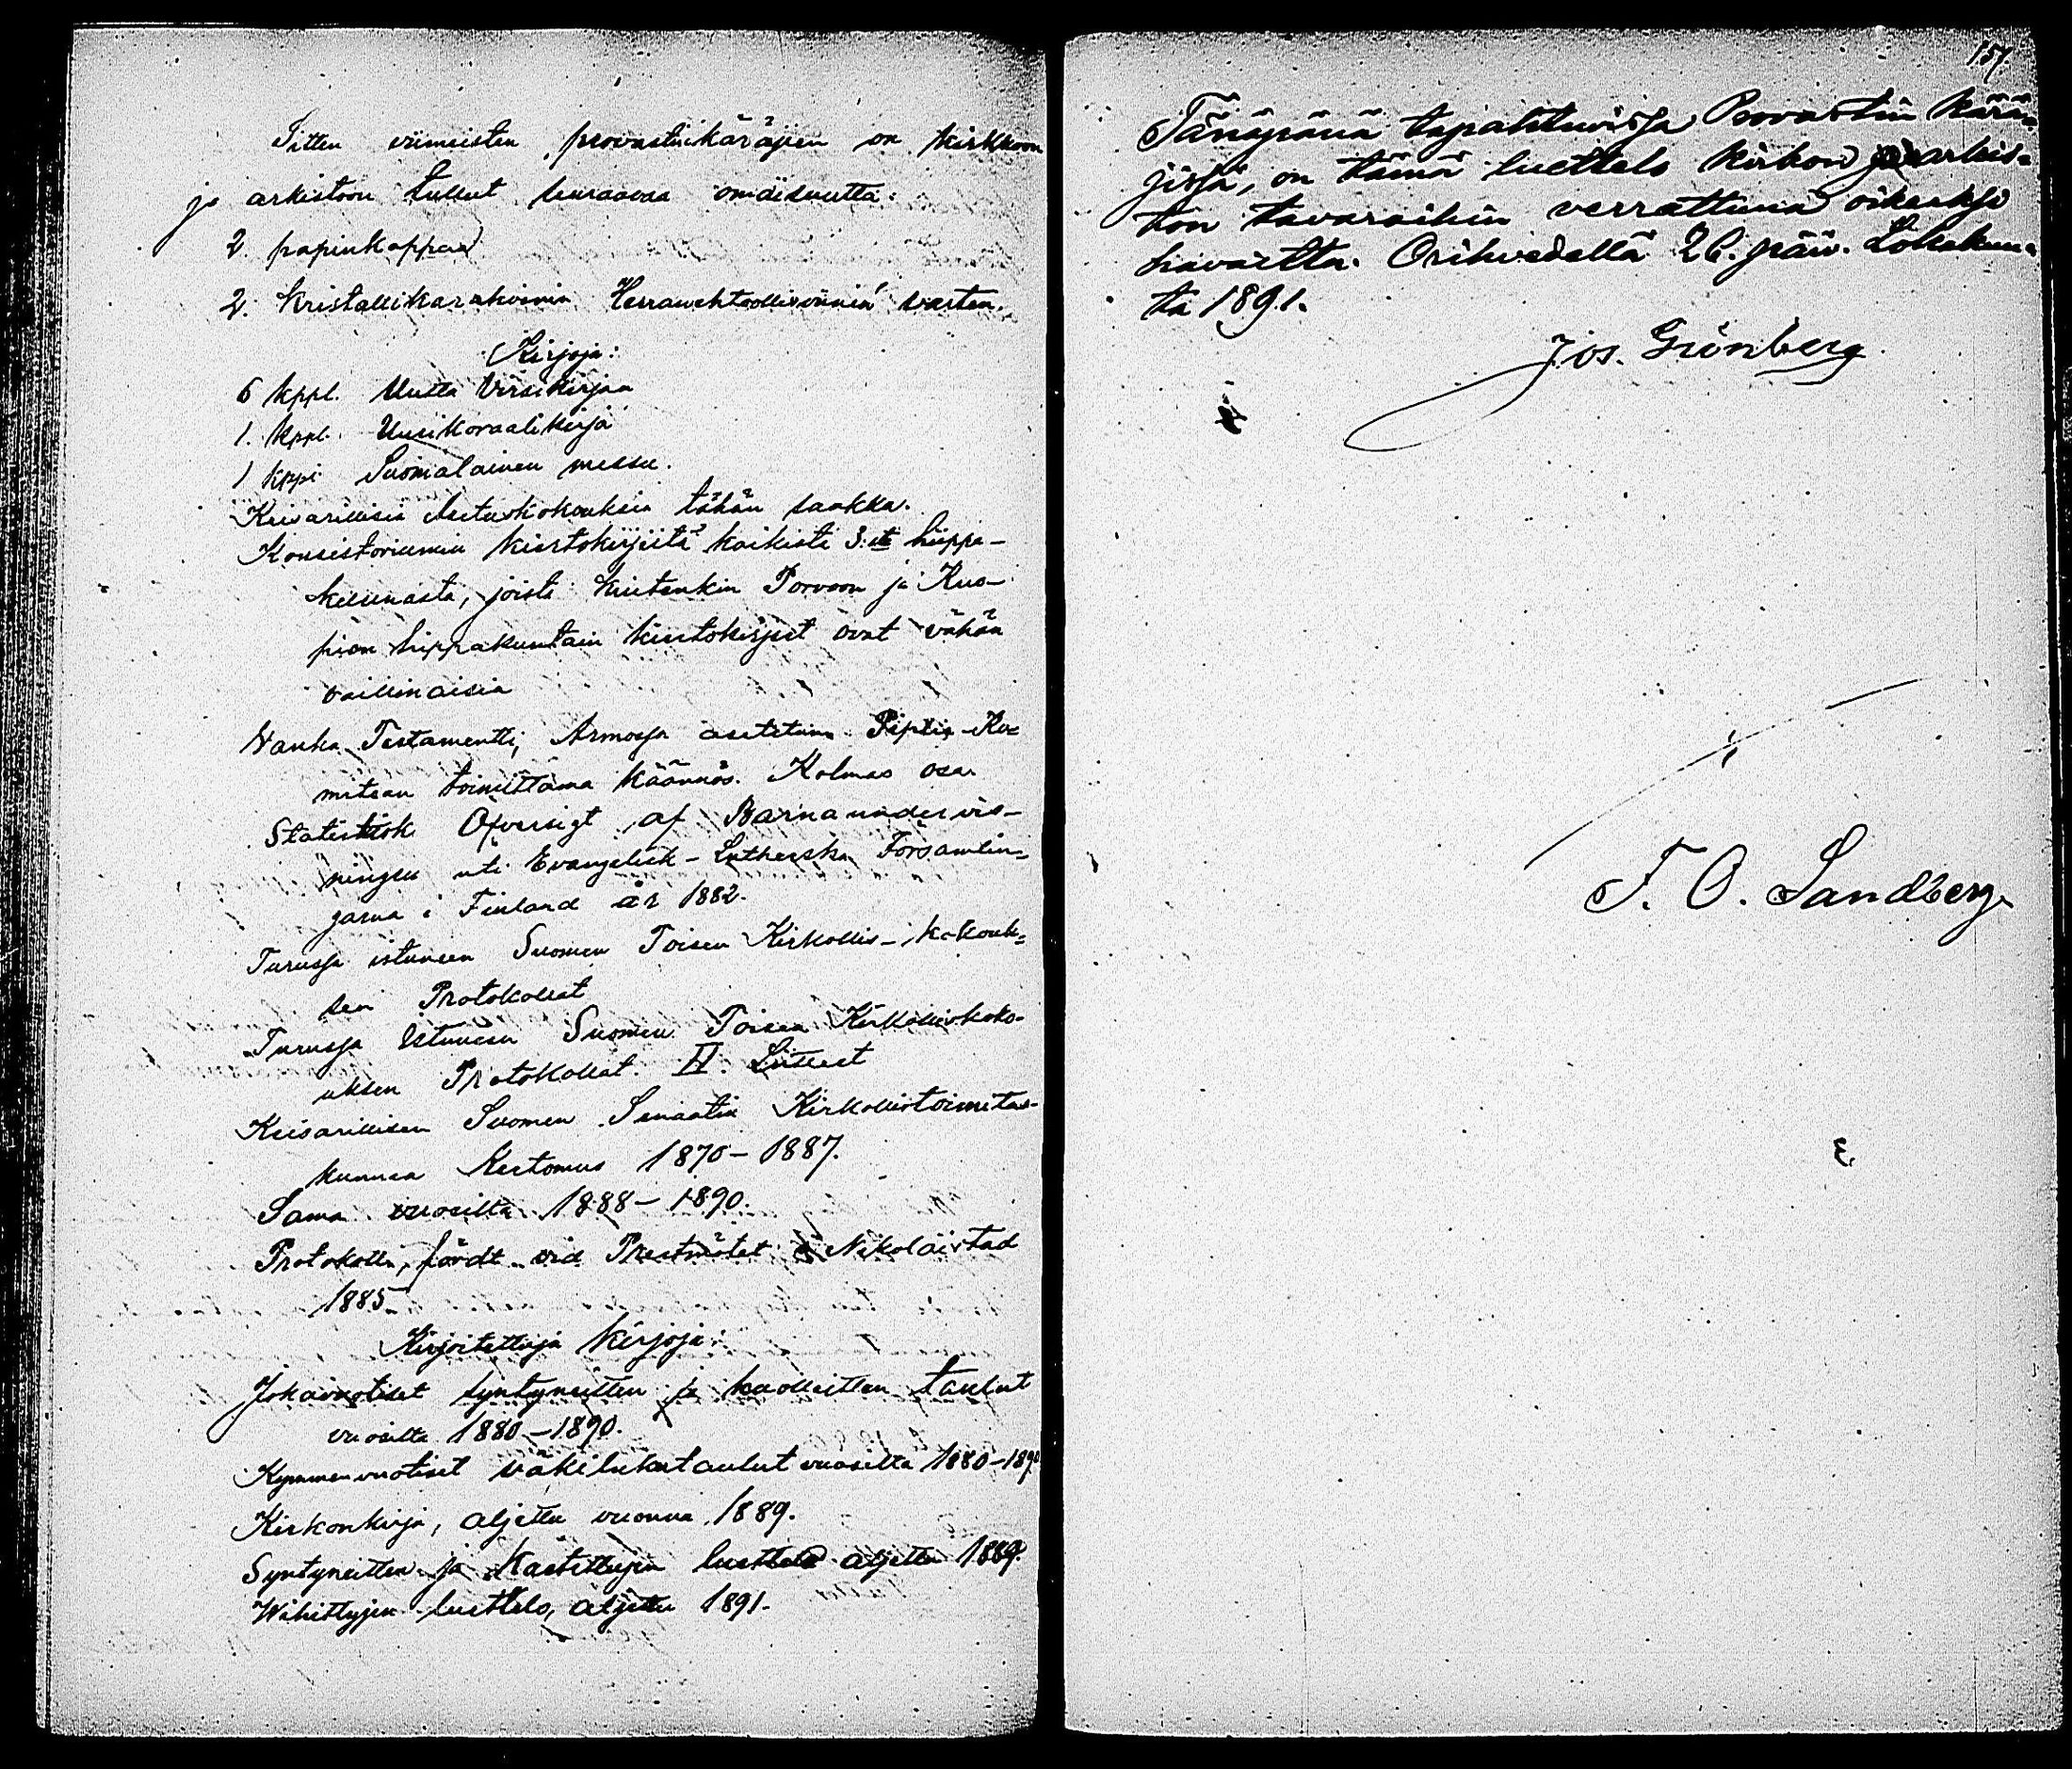 Sitten viimeisten provastinkäräjien on kirkkoon
ja arkistoon tullut seuraavaa omaisuutta:
2 papinkappaa
2. Kristallikarahvinia Herranehtoollisviiniä varten.
Kirjoja:
6 kppl. Uutta Virsikirjaa
1. kppl. Uusikoraalikirja
1 kppl Suomalainen messu.
Keisarillisia Asetuskokouksia tähän saakka.
Konsistoriumin kiertokirjeitä kaikista 3:sta hiippa-
kunnasta, joista kuitenkin Porvoon ja Kuo-
pion hiippakuntain kiertokirjeet ovat vähän
vaillinaisia
Vanha Testamentti, Armossa asetetun Piplia-Ko-
mitean toimittama käännös. Kolmas osa.
Statistisk Öfversigt af Barnaundervis-
ningen uti Evangelisk-Lutherska Församlin-
garna i Finland år 1882.
Turussa istuneen Suomen Toisen Kirkollis-kokouk-
sen Protokollat
Turussa Istuneen Suomen Toisen Kirkolliskoko-
uksen Protokollat. II. Liitteet
Keisarillisen Suomen Senaatin Kirkollistoimitus-
kunnan Kertomus 1870-1887.
Sama vuosilta 1888-1890.
Protokoll, fördt vid Prestmötet i Nikolaistad
1885.
Kirjoitettuja kirjoja:
Jokavuotiset syntyneitten ja kuolleitten taulut
vuosilta 1880-1890.
Kymmenvuotiset väkilukutaulut vuosilta 1880-1890
Kirkonkirja, aljettu vuonna 1889.
Syntyneitten ja Kastettujen luettelo aljettu 1889.
Wihittyjen luettelo, aljettu 1891.
157.
Tänäpänä tapahtuvissa Provastin kärä-
jissä, on tämä luettelo kirkon ja arkis-
ton tavaroihin verrattuna oikeaksi
havaittu. Orihvedellä 26. päiv. Lokakuu-
ta 1891.
Jos. Grönberg
F. O. Sandberg.